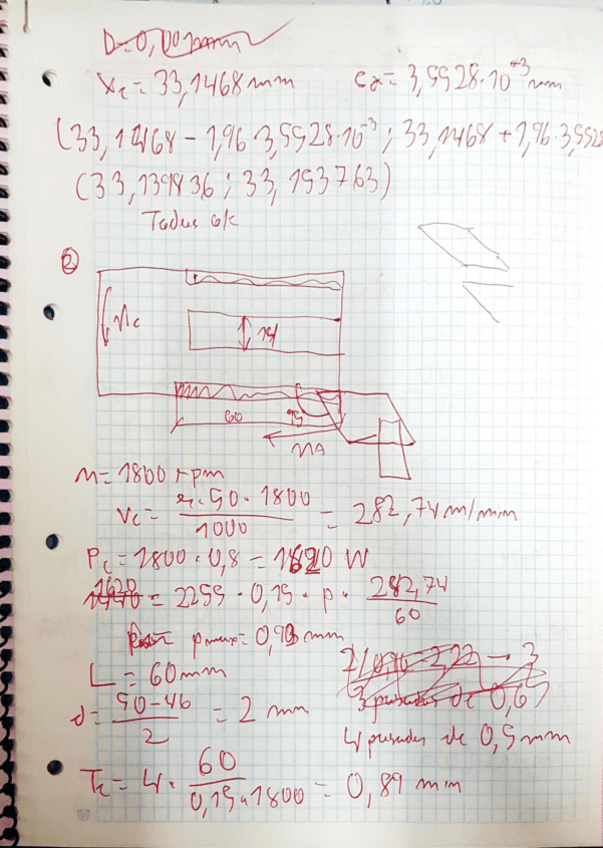 D=0,00mm
X₂ = 33,1468mm   Cα = 3,5528·10⁻³ mm
(33,1468 - 1,96·3,5528·10⁻³ ; 33,1468 + 1,96·3,5528
(33,139836 ; 33,153763)
Todas ok
②
nc
60
95
nA
n = 1800 rpm
Vc = π·50·1800 / 1000 = 282,74 m/min
Pc = 1800·0,8 = 1620 W
1620 = 2255·0,15·p·282,74 / 60
pmax = 0,93mm
L = 60mm
d = 50-46 / 2 = 2 mm
3 pasadas de 0,65
4 pasadas de 0,5mm
Tc = 4·60 / 0,15·1800 = 0,89 min